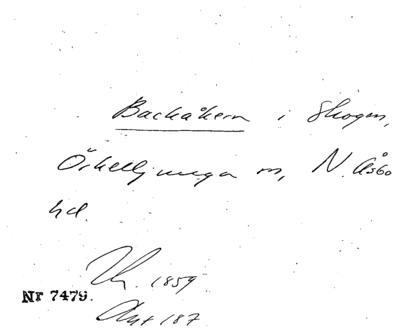 Backåkern i Skogen,
Örkelljunga sn, N. Åsbo
hd.
1859
Nr 7479.
187